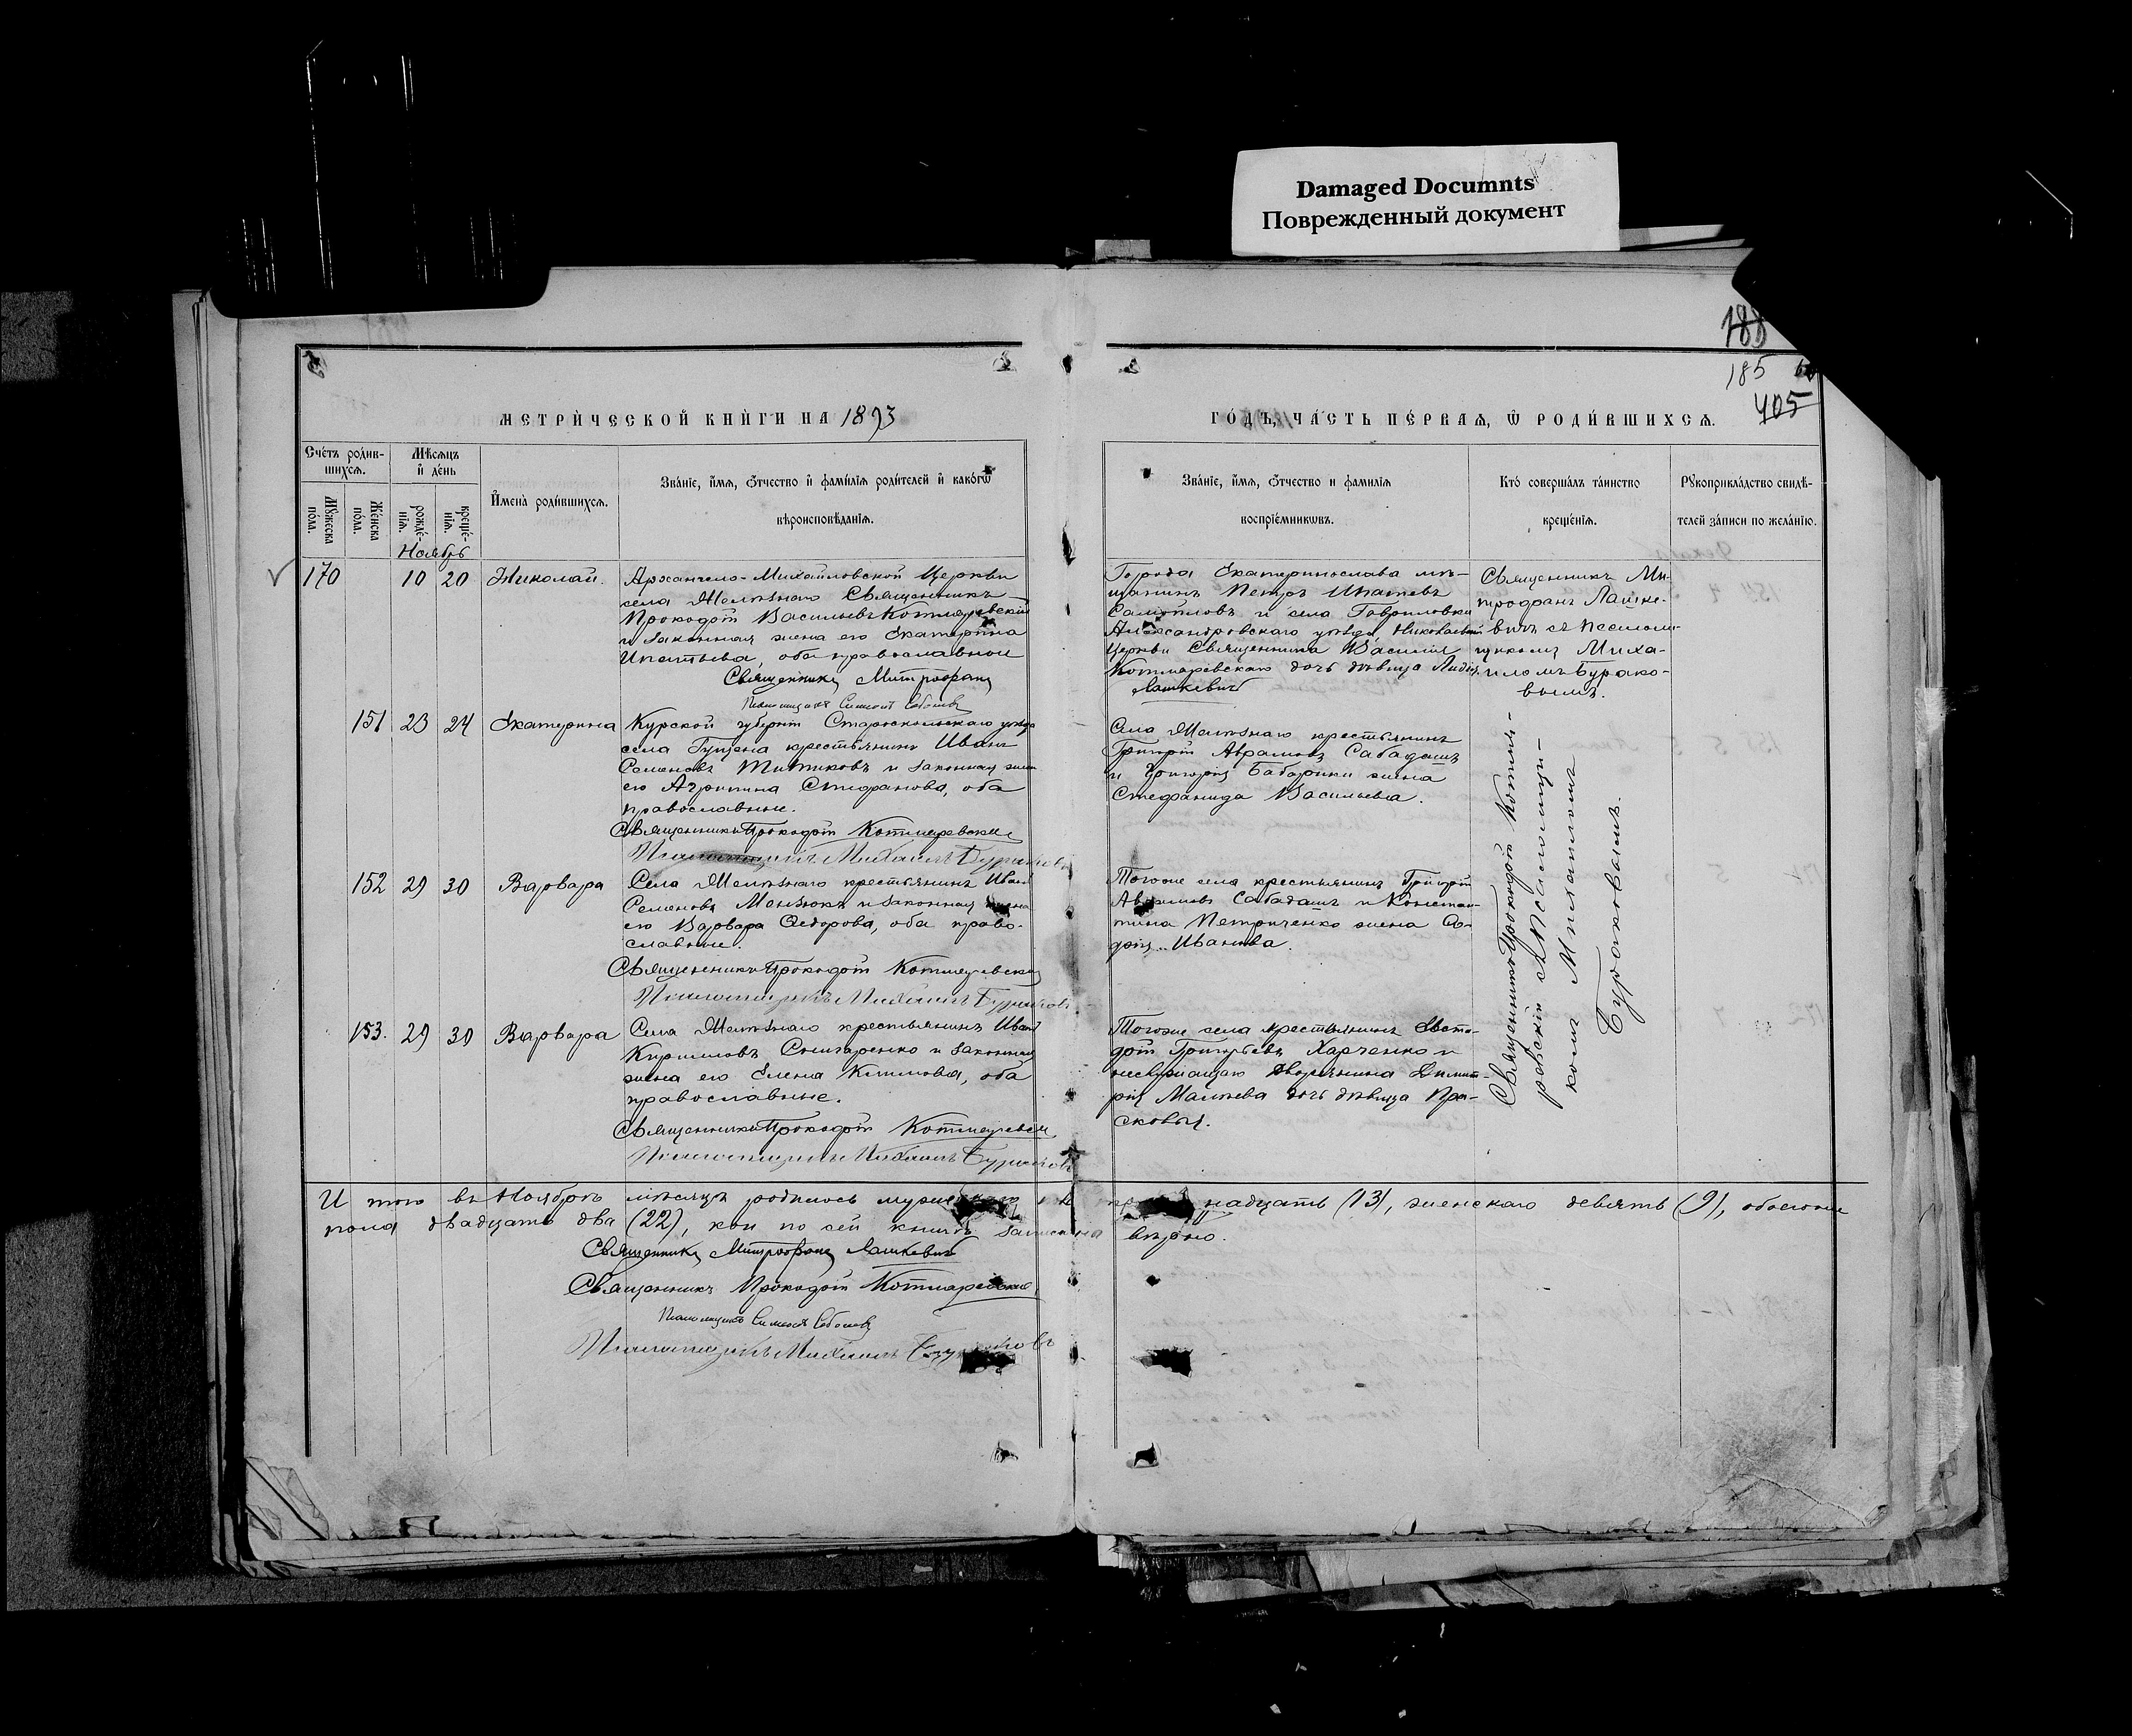 Damaged Documnts
Поврежденный документ
188
185
405
МЕТРИЧЕСКОЙ КНИГИ НА 1893
ГОДЪ, ЧАСТЬ ПЕРВАЯ, Ѿ РОДИВШИХСЯ.
Счетъ родив-
шихся.
Мужеска пола.
Женска пола.
Мѣсяцъ
и день
рожде-
нія.
креще-
нія.
Ноябрь
Имена родившихся.
Званіе, имя, отчество и фамилія родителей и какогѡ
вѣроисповѣданія.
Званіе, имя, отчество и фамилія
воспріемниковъ.
Кто совершалъ таинство
крещенія.
Рукоприкладство свидѣ-
телей записи по желанію.
170 10 20 Николай.
Архангело-Михайловской Церкви
села Желѣзнаго Священникъ
Прокофій Васильевъ Котляревскій
и законная жена его Екатерина
Ипатьева, оба православной
Священникъ Митрофанъ
Лашкевичъ
Псаломщикъ Симеонъ
Города Екатеринослава мѣ-
щанинъ Петръ Ипатьевъ
Самойловъ и села Гавриловки
Александровскаго уѣзда, Николаевской
Церкви Священника Василія
Котляревскаго дочь дѣвица Лидія.
Священникъ Ми-
трофанъ Лашке-
вичъ съ псалом-
щикомъ Миха-
иломъ Бурако-
вымъ.
151 23 24 Екатерина
Курской губерніи Старооскольскаго уѣзда
села крестьянинъ Иванъ
Семеновъ и законная жена
его Агрипина Стефанова, оба
православные.
Священникъ Прокофій Котляревскій
Псаломщикъ Михаилъ Бураковъ
Села Желѣзнаго крестьянинъ
Григорій Аврамовъ Сабадашъ
и Григорія Бабарики жена
Стефанида Васильева.
152 29 30 Варвара
Села Желѣзнаго крестьянинъ Иванъ
Семеновъ и законная жена
его Варвара Ѳедорова, оба право-
славные.
Священникъ Прокофій Котляревскій
Псаломщикъ Михаилъ Бураковъ
Тогоже села крестьянинъ Григорій
Аврамовъ Сабадашъ и Констан-
тина Петриченко жена
Иванова.
153. 29 30 Варвара
Села Желѣзнаго крестьянинъ Иванъ
Кирилловъ и законная
жена его Елена Климова, оба
православные.
Священникъ Прокофій Котляревскій
Псаломщикъ Михаилъ Бураковъ
Тогоже села крестьянинъ
Григорьевъ Харченко и
дворянина Димит-
рія дочь дѣвица Пра-
сковья.
Священникъ Прокофій Котля-
ревскій съ Псаломщи-
комъ Михаиломъ
Бураковымъ.
И того въ Ноябрѣ мѣсяцѣ родилось мужескаго надцать (13), женскаго девять (9), обоегоже
пола двадцать два (22), кои по сей книгѣ записаны вѣрно.
Священникъ Митрофанъ Лашкевичъ
Священникъ Прокофій Котляревскій
Псаломщикъ Симеонъ
Псаломщикъ Михаилъ Бураковъ